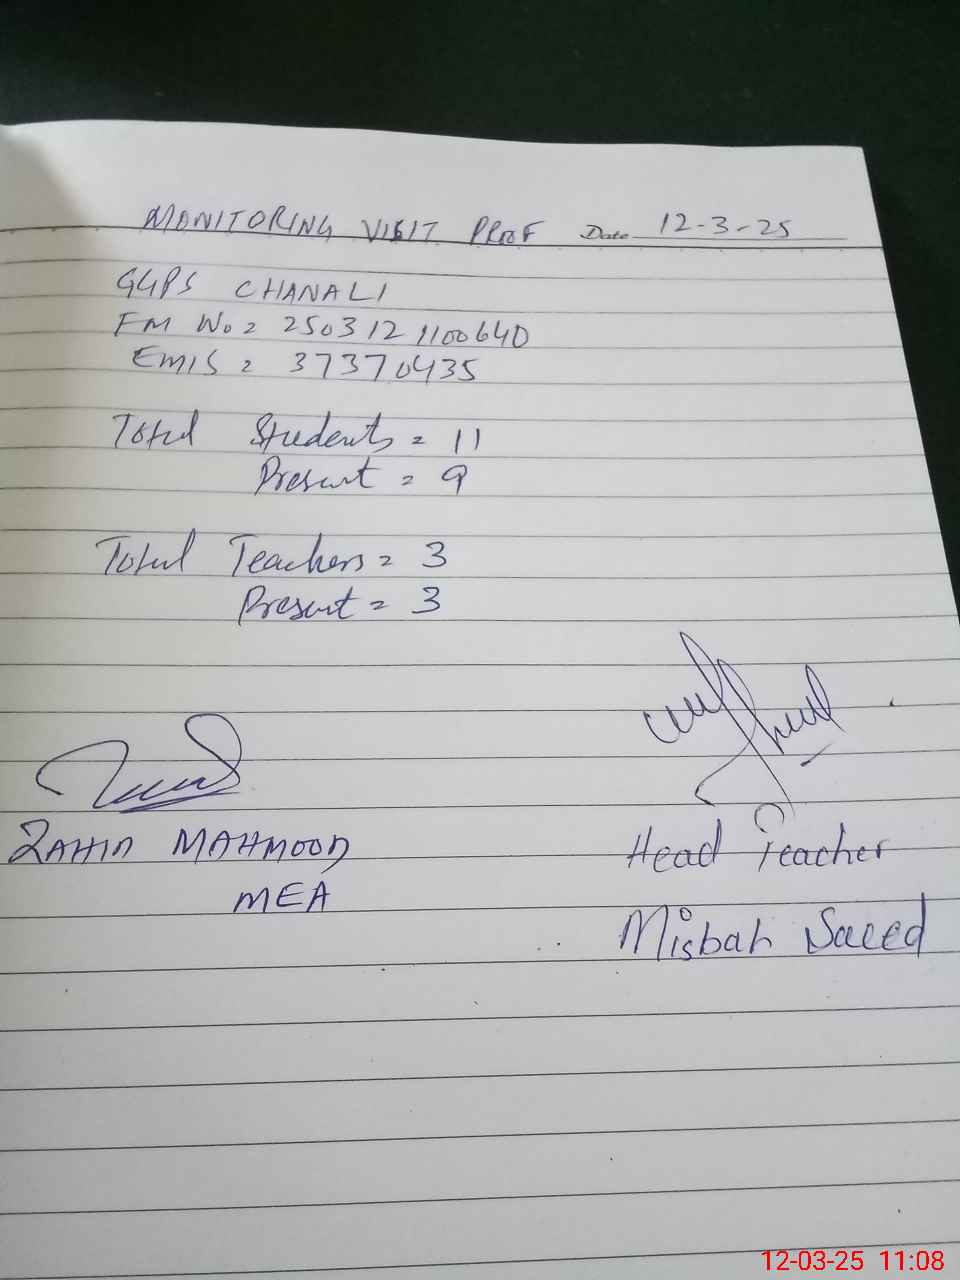 MONITORING VISIT PROOF Date 12-3-25
GGPS CHANALI
FM No = 2503121100640
EMIS = 37370435
Total Students = 11
Present = 9
Total Teachers = 3
Present = 3
ZAHID MAHMOOD
MEA
Head Teacher
Misbah Saeed
12-03-25 11:08